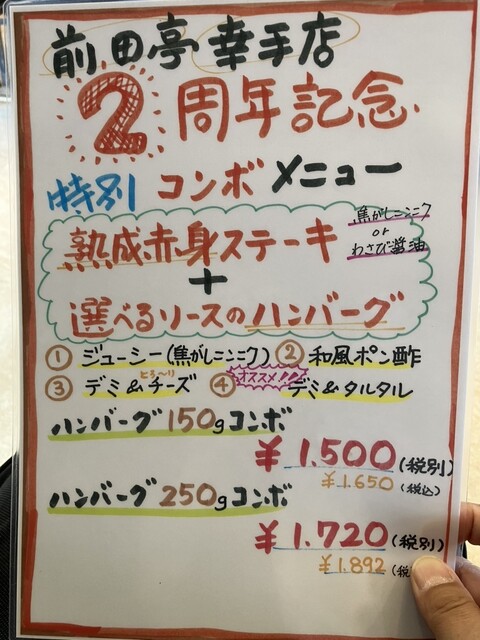 前田亭 幸手店
2周年記念
特別 コンボメニュー
熟成赤身ステーキ
焦がしニンニク
or
わさび醤油
+
選べるソースのハンバーグ
① ジューシー(焦がしニンニク) ② 和風ポン酢
とろ〜り オススメ!!!
③ デミ&チーズ ④ デミ&タルタル
ハンバーグ150gコンボ
¥1.500(税別)
¥1.650(税込)
ハンバーグ250gコンボ
¥1.720(税別)
¥1.892(税